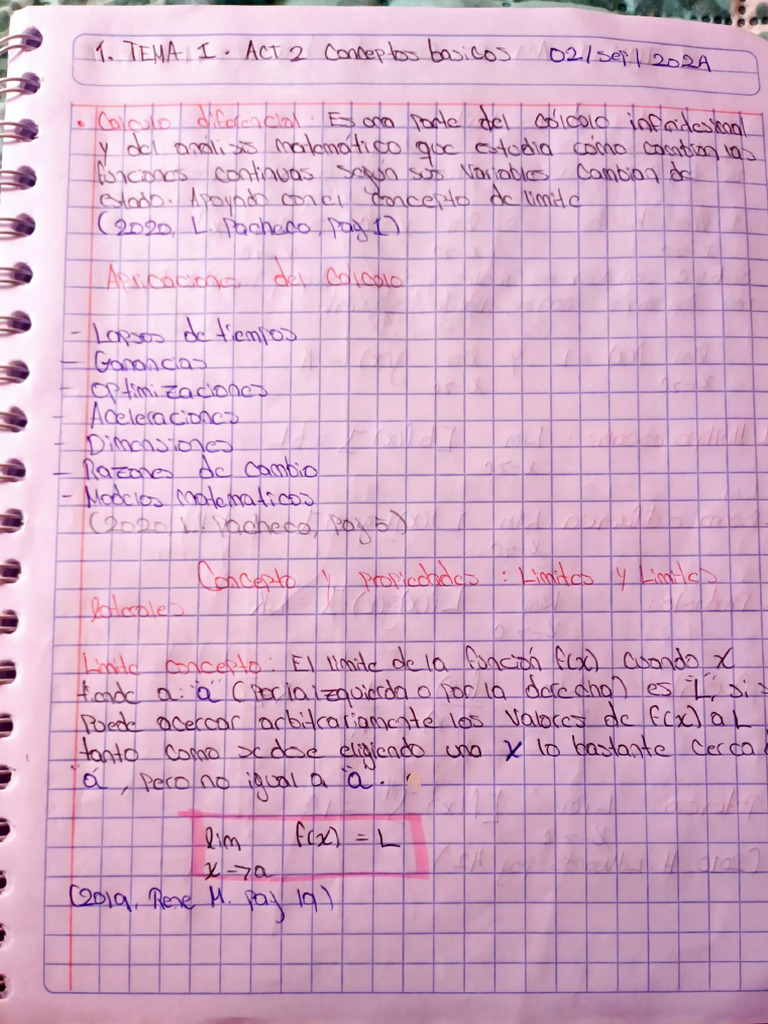 1. TEMA I. ACT 2 Conceptos basicos 02/sep/2024
• Calculo diferencial: Es una parte del cálculo infinitesimal
y del análisis matemático que estudia cómo cambian las
funciones continuas según sus variables cambian de
estado. Apoyado con el concepto de limite
(2020, L. Pacheco, pag 1)
Aplicaciones del calculo
- Lapsos de tiempos
- Ganancias
- Optimizaciones
- Aceleraciones
- Dimensiones
- Razones de cambio
- Modelos matematicos
(2020, L. Pacheco, pag 5)
Concepto y propiedades: Limites y Limites
laterales
Limite concepto: El limite de la función f(x) cuando x
tiende a: "a" (por la izquierda o por la derecha) es "L", si se
puede acercar arbitrariamente los valores de f(x) a L
tanto como se dese eligiendo una x lo bastante cerca a
"a", pero no igual a "a".
lim f(x) = L
x→a
(2019, Rene M. pag 19)